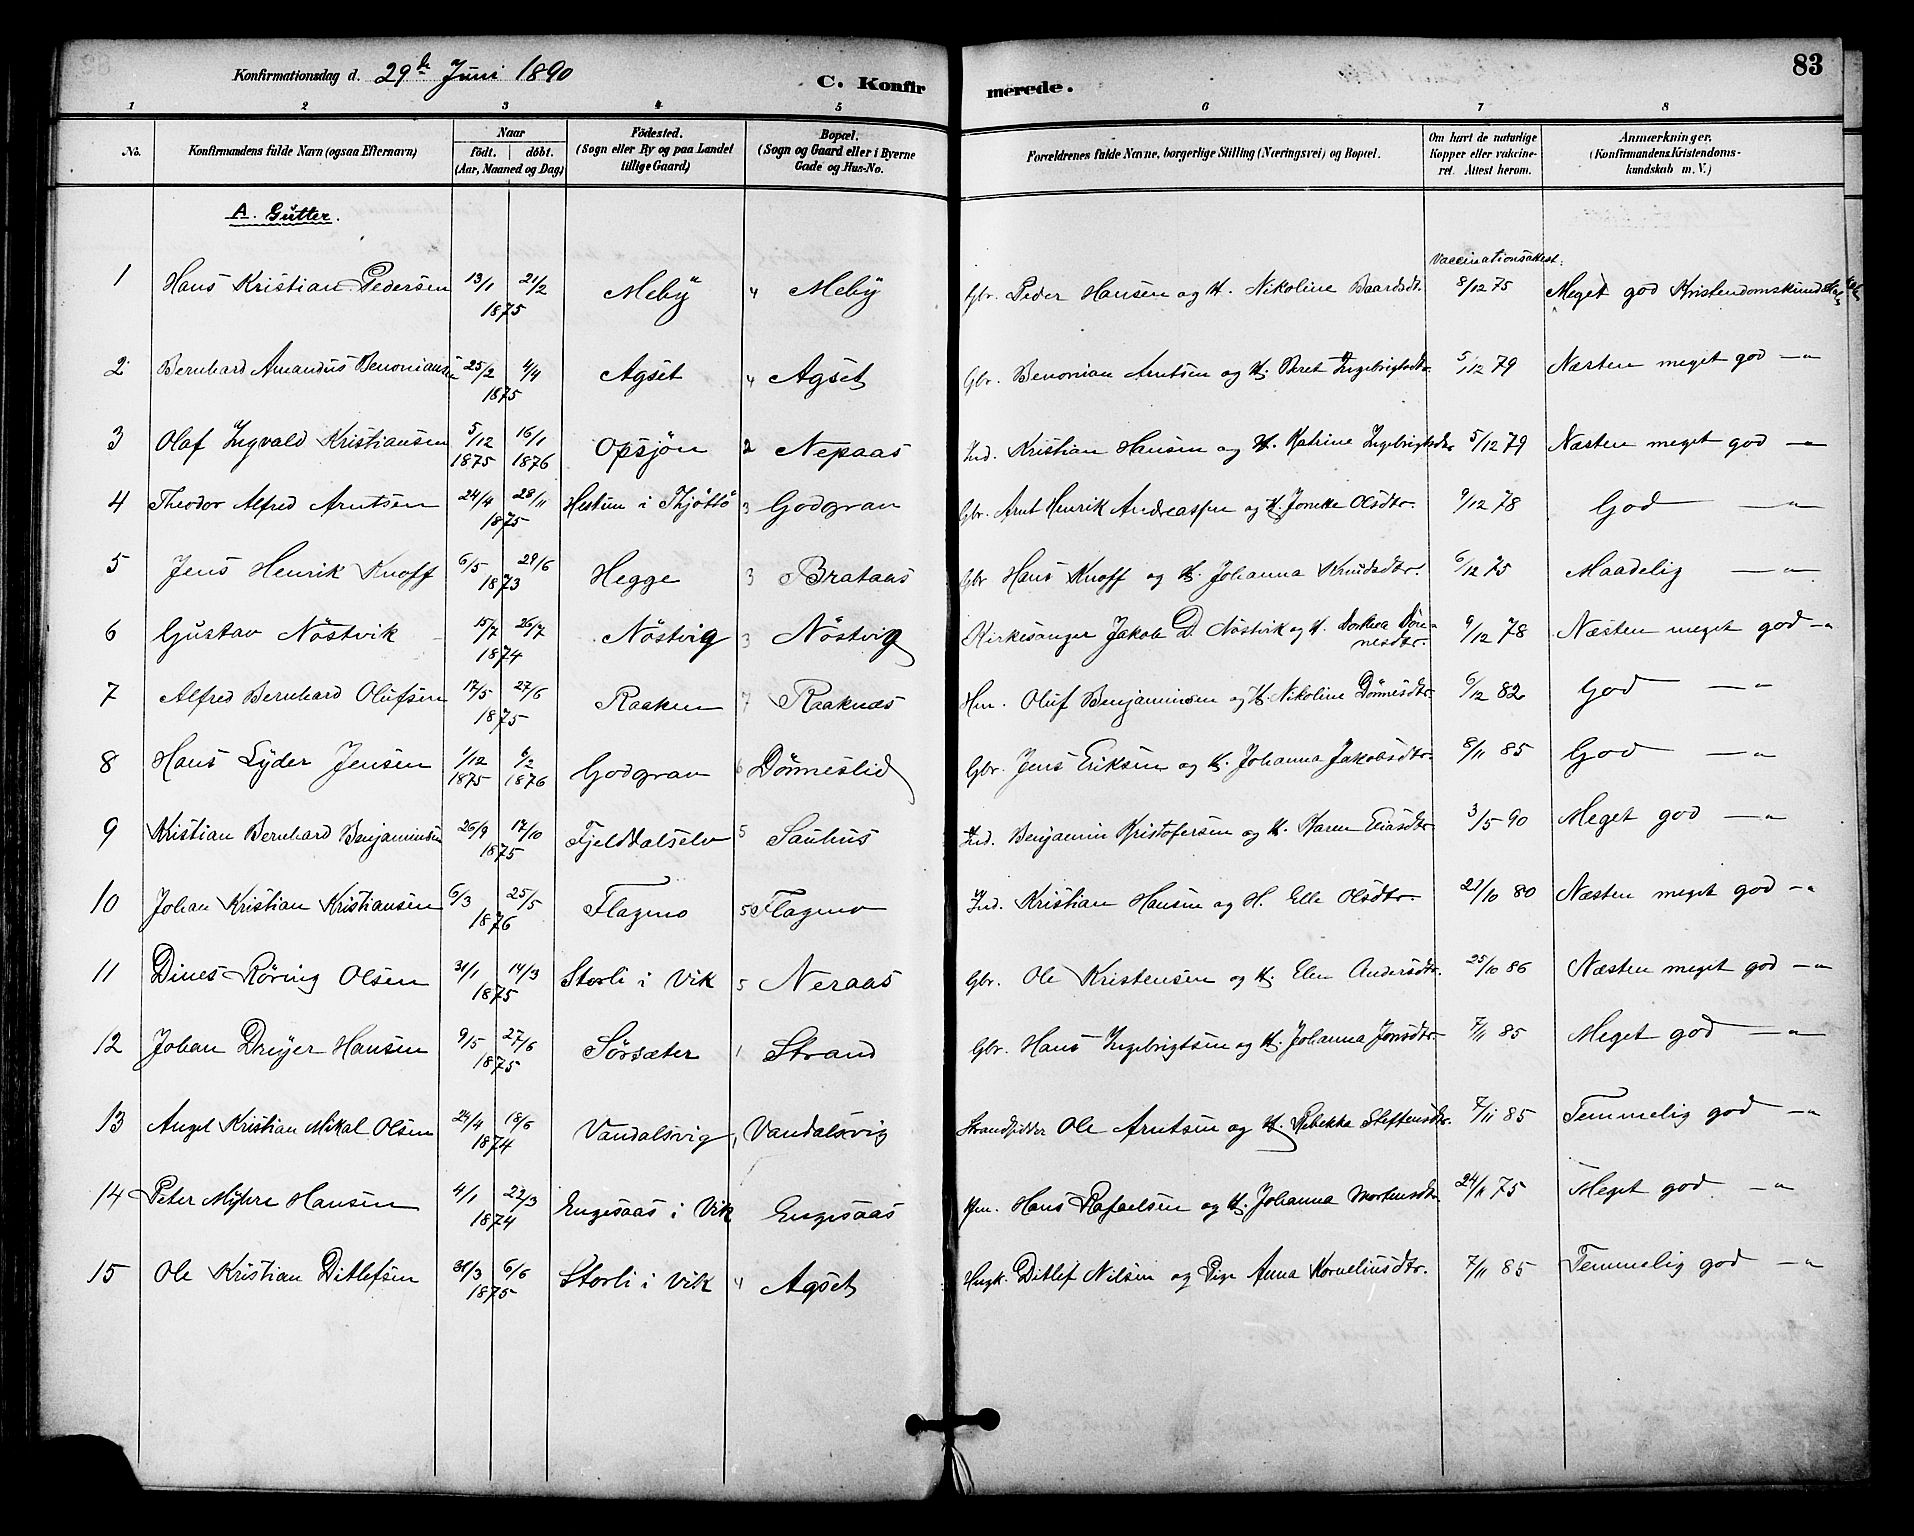 Konfirmationsdag d. 29de Juni 1890
C. Konfirmerede.
83
1 2 3 4 5 6 7 8
No.
Konfirmandens fulde Navn (ogsaa Efternavn)
Naar
födt. döbt.
(Aar, Maaned og Dag)
Födested.
(Sogn eller By og paa Landet
tillige Gaard)
Bopæl.
(Sogn og Gaard eller i Byerne
Gade og Hus-No.
Forældrenes fulde Navne, borgerlige Stilling (Næringsvei) og Bopæl.
Om havt de naturlige
Kopper eller vakcine-
ret. Attest herom.
Anmærkninger.
(Konfirmandens Kristendoms-
kundskab m. V.)
A. Gutter.
Vaccinationsattest.
1 Hans Kristian Pedersen 13/1 21/2 1875 Meby 4 Meby Gbr. Peder Hansen og H. Nikoline Baardsdtr. 8/12 75 Meget god Kristendomskundskab
2 Bernhard Amandus Benoniansen 25/2 4/4 1875 Agset 4 Agset Gbr. Benonian Arntsen og H. Beret Ingebrigtsdtr. 5/12 79 Næsten meget god —"
3 Olaf Ingvald Kristiansen 5/12 1875 16/1 1876 Opsjön 2 Nepaas Ind. Kristian Hansen og H. Katrine Ingebrigtsdtr 5/12 79 Næsten meget god —"
4 Theodor Alfred Arntsen 24/4 28/11 1875 Hestun i Thjöttö 3 Godgran Gbr. Arnt Henrik Andreassen og H. Joneke Olsdtr. 9/12 78 God —"
5 Jens Henrik Knoff 6/5 29/6 1873 Hegge 3 Brataas Gbr Hans Knoff og H. Johanna Knudsdtr. 6/12 75 Maadelig —"
6 Gustav Nöstvik 15/7 26/7 1874 Nöstvig 3 Nöstvig Kirkesanger Jakob D. Nöstvik og H. Dorthea Dön-
nesdtr. 9/12 78 Næsten meget god —"
7 Alfred Bernhard Olufsen 17/5 27/6 1875 Raaknes 7 Raaknæs Hm. Oluf Benjaminsen og H. Nikoline Dönnesdtr. 6/12 82 God —"
8 Hans Lyder Jensen 1/12 1875 6/2 1876 Godgrav 6 Dönneslid Gbr. Jens Eriksen og H. Johanna Jakobsdtr. 8/11 85 God —"
9 Kristian Bernhard Benjaminsen 26/9 17/10 1875 Fjelddalselv 5 Sauhus Ind. Benjamin Kristofersen og H. Karen Eliasdtr. 3/5 90 Meget god —"
10 Johan Kristian Kristiansen 6/3 25/5 1876 Flagmo 5 Flagmo Ind. Kristian Hansen og H. Elle Olsdtr. 21/10 80 Næsten meget god —"
11 Dines Röring Olsen 31/1 14/3 1875 Storli i Vik 5 Neraas Gbr. Ole Kristensen og H. Elen Andersdtr. 25/10 86 Næsten meget god —"
12 Johan Dreyer Hansen 9/5 27/6 1875 Sörsæter 1 Strand Gbr. Hans Ingebrigtsen og H. Johanna Jonsdtr. 7/11 85 Meget god —"
13 Angel Kristian Mikal Olsen 24/4 18/6 1874 Vandalsvig 1 Vandalsvig Strandsidder Ole Arntsen og H. Rebekka Steffensdtr. 7/11 85 Temmelig god —"
14 Peter Myhre Hansen 4/1 22/3 1874 Engesaas i Vik Engesaas Hm. Hans Rafaelsen og H. Johanna Mortensdtr 24/11 75 Meget god —"
15 Ole Kristian Ditlefsen 31/3 6/6 1875 Storli i Vik 4 Agset Ungk. Ditlef Nilsen og Pige Anna Korneliusdtr. 7/11 85 Temmelig god —"